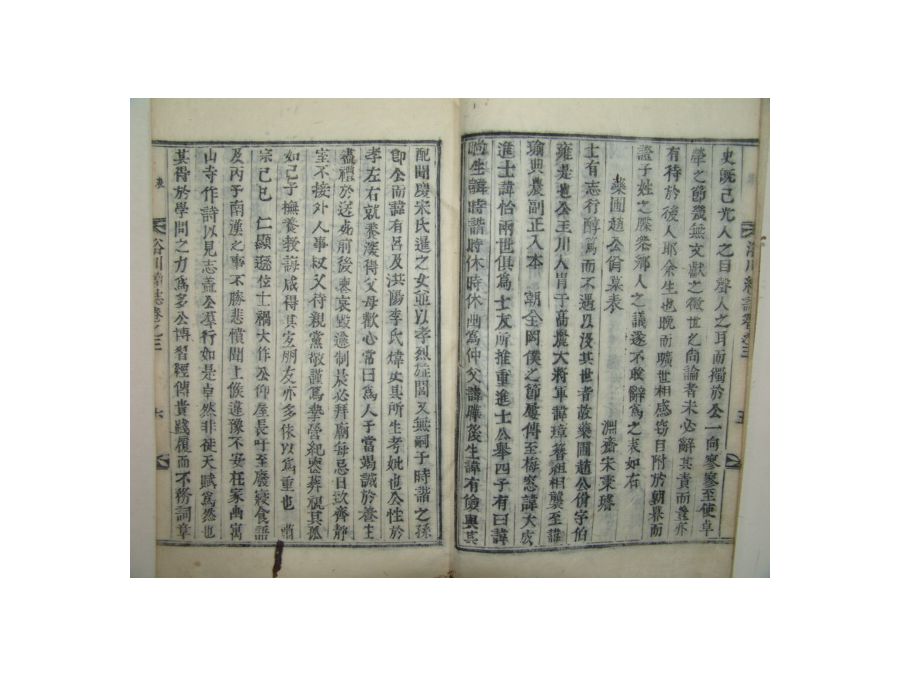 史旣已光人之目聲人之耳而獨於公一向寥寥至使卓
犖之節幾無文獻之徵世之尙論者未必辭其責而蓋亦
有待於後人耶余生也晩而曠世相感窃自附於朝暮而
證子姓之牒參鄕人之議遂不敢辭爲之表如右
淵齋宋秉璿
藥圃趙公佾墓表
士有志行醇篤而不遇以沒其世者故藥圃趙公佾字伯
雍是也公玉川人胄于高麗大將軍諱璋簪組相襲至諱
瑜典農副正入本朝全罔僕之節屢傳至梅窓諱大成
進士諱怡兩世俱爲士友所推重進士公擧四子有曰諱
時生諱時諱時休時休幽爲仲父諱 後生諱有儉與其
配聞慶宋氏暹之女並以孝烈旌閭又無嗣子時諧之孫
卽公南諱有呂及洪陽李氏煒 其所生考妣也公性於
孝左右就養深得父母歡心常曰爲人子當竭誠於養生
盡禮於送 前後 哀毀逾制晨必拜廟每忌日致齊靜
室不接外人事叔父待親黨敬謹篤摯營紀窓葬視其孤
如己子撫養敎誨咸得其 朋友亦多依以爲重也
宗己巳 仁顯遜位士禍大作公仰屋長吁至廢寢食語
及丙丁南漢之事不勝悲憤聞上候違豫不安在家 寓
山寺作詩以見志蓋公 行如是卓然非徒天賦爲然也
其得於學問之力爲多公博習經傳貴踐履而不務詞章
浴川續誌卷之三 六
浴川續誌卷之三 五